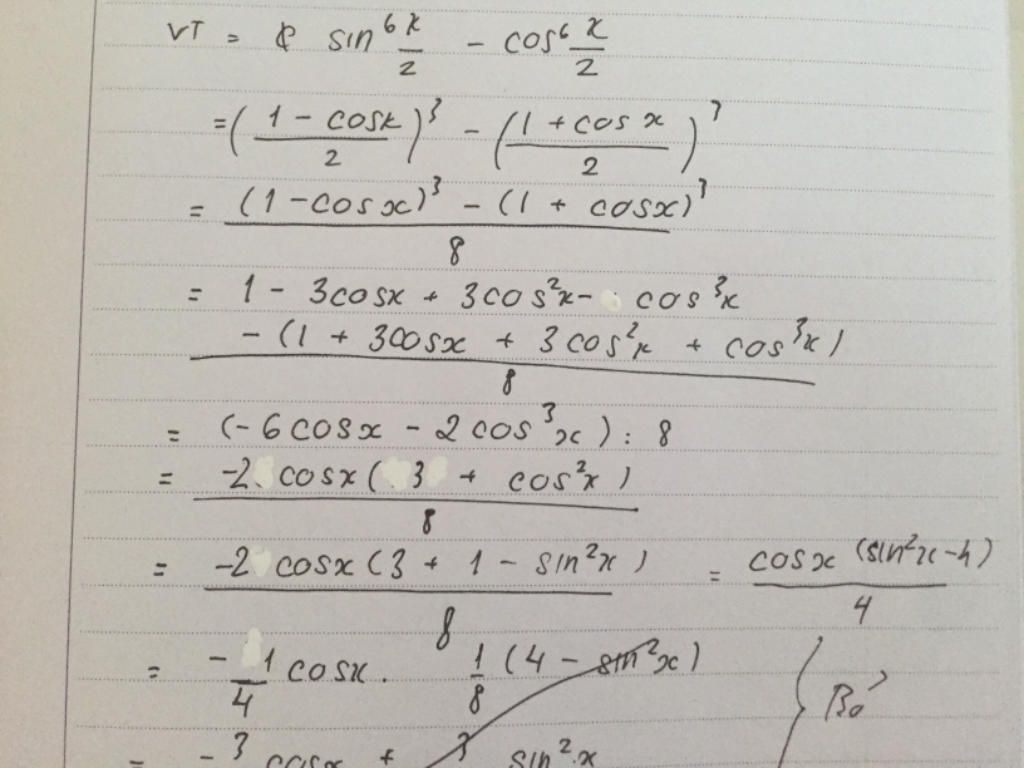 VT = & sin⁶ x/2 - cos⁶ x/2
= ((1 - cosx)/2)³ - ((1 + cos x)/2)³
= ((1 - cosx)³ - (1 + cosx)³)/8
= 1 - 3cosx + 3cos²x - cos³x
- (1 + 3cosx + 3cos²x + cos³x)
8
= (-6cosx - 2cos³x) : 8
= -2 cosx (3 + cos²x)/8
= -2 cosx (3 + 1 - sin²x)/8 = cosx (sin²x-4)/4
= -1/4 cosx. 1/8 (4 - sin²x)
Bỏ
= - 3 cosx + 3 sin²x